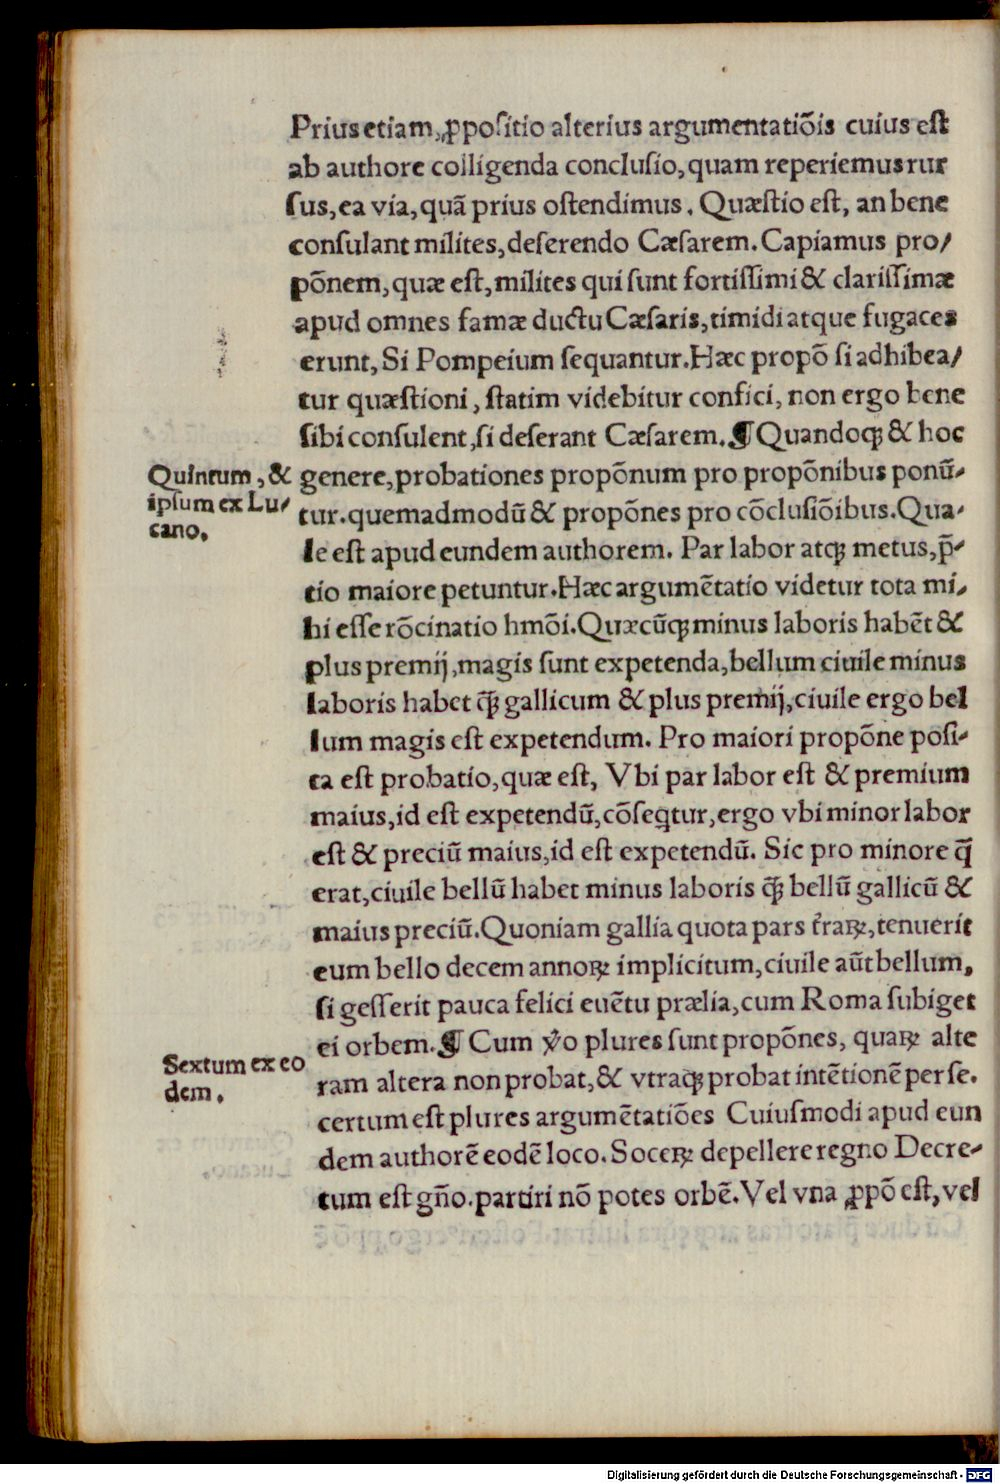 Prius etiam, ꝓpositio alterius argumentatiõis cuius est
ab authore colligenda conclusio, quam reperiemus rur
sus, ea via, quã prius ostendimus. Quæstio est, an bene
consulant milites, deserendo Cæsarem. Capiamus pro/
põnem, quæ est, milites qui sunt fortissimi & clarissimæ
apud omnes famæ ductu Cæsaris, timidi atque fugaces
erunt, Si Pompeium sequantur. Hæc propõ si adhibea/
tur quæstioni, statim videbitur confici, non ergo bene
sibi consulent, si deserant Cæsarem. ¶ Quandoqꝫ & hoc
Quintum, &
ipsum ex Lu/
cano.
genere, probationes propõnum pro propõnibus ponũ-
tur. quemadmodũ & propõnes pro cõclusiõibus. Qua-
le est apud eundem authorem. Par labor atqꝫ metus, p̃-
tio maiore petuntur. Hæc argumẽtatio videtur tota mi-
hi esse rõcinatio hmõi. Quæcũqꝫ minus laboris habẽt &
plus premij, magis sunt expetenda, bellum ciuile minus
laboris habet q̃ꝫ gallicum & plus premij, ciuile ergo bel
lum magis est expetendum. Pro maiori propõne posi-
ta est probatio, quæ est, Vbi par labor est & premium
maius, id est expetendũ, cõseqtur, ergo vbi minor labor
est & preciũ maius, id est expetendũ. Sic pro minore q̃
erat, ciuile bellũ habet minus laboris q̃ꝫ bellũ gallicũ &
maius preciũ. Quoniam gallia quota pars t̃raꝝ, tenuerit
eum bello decem annoꝝ implicitum, ciuile aũt bellum,
si gesserit pauca felici euẽtu prælia, cum Roma subiget
ei orbem. ¶ Cum v̓o plures sunt propõnes, quaꝝ alte
Sextum ex eo
dem.
ram altera non probat, & vtraqꝫ probat intẽtionẽ per se.
certum est plures argumẽtatiões Cuiusmodi apud eun
dem authorẽ eodẽ loco. Soceꝝ depellere regno Decre-
tum est gño. partiri nõ potes orbẽ. Vel vna ꝓpõ est, vel
Digitalisierung gefördert durch die Deutsche Forschungsgemeinschaft - DFG